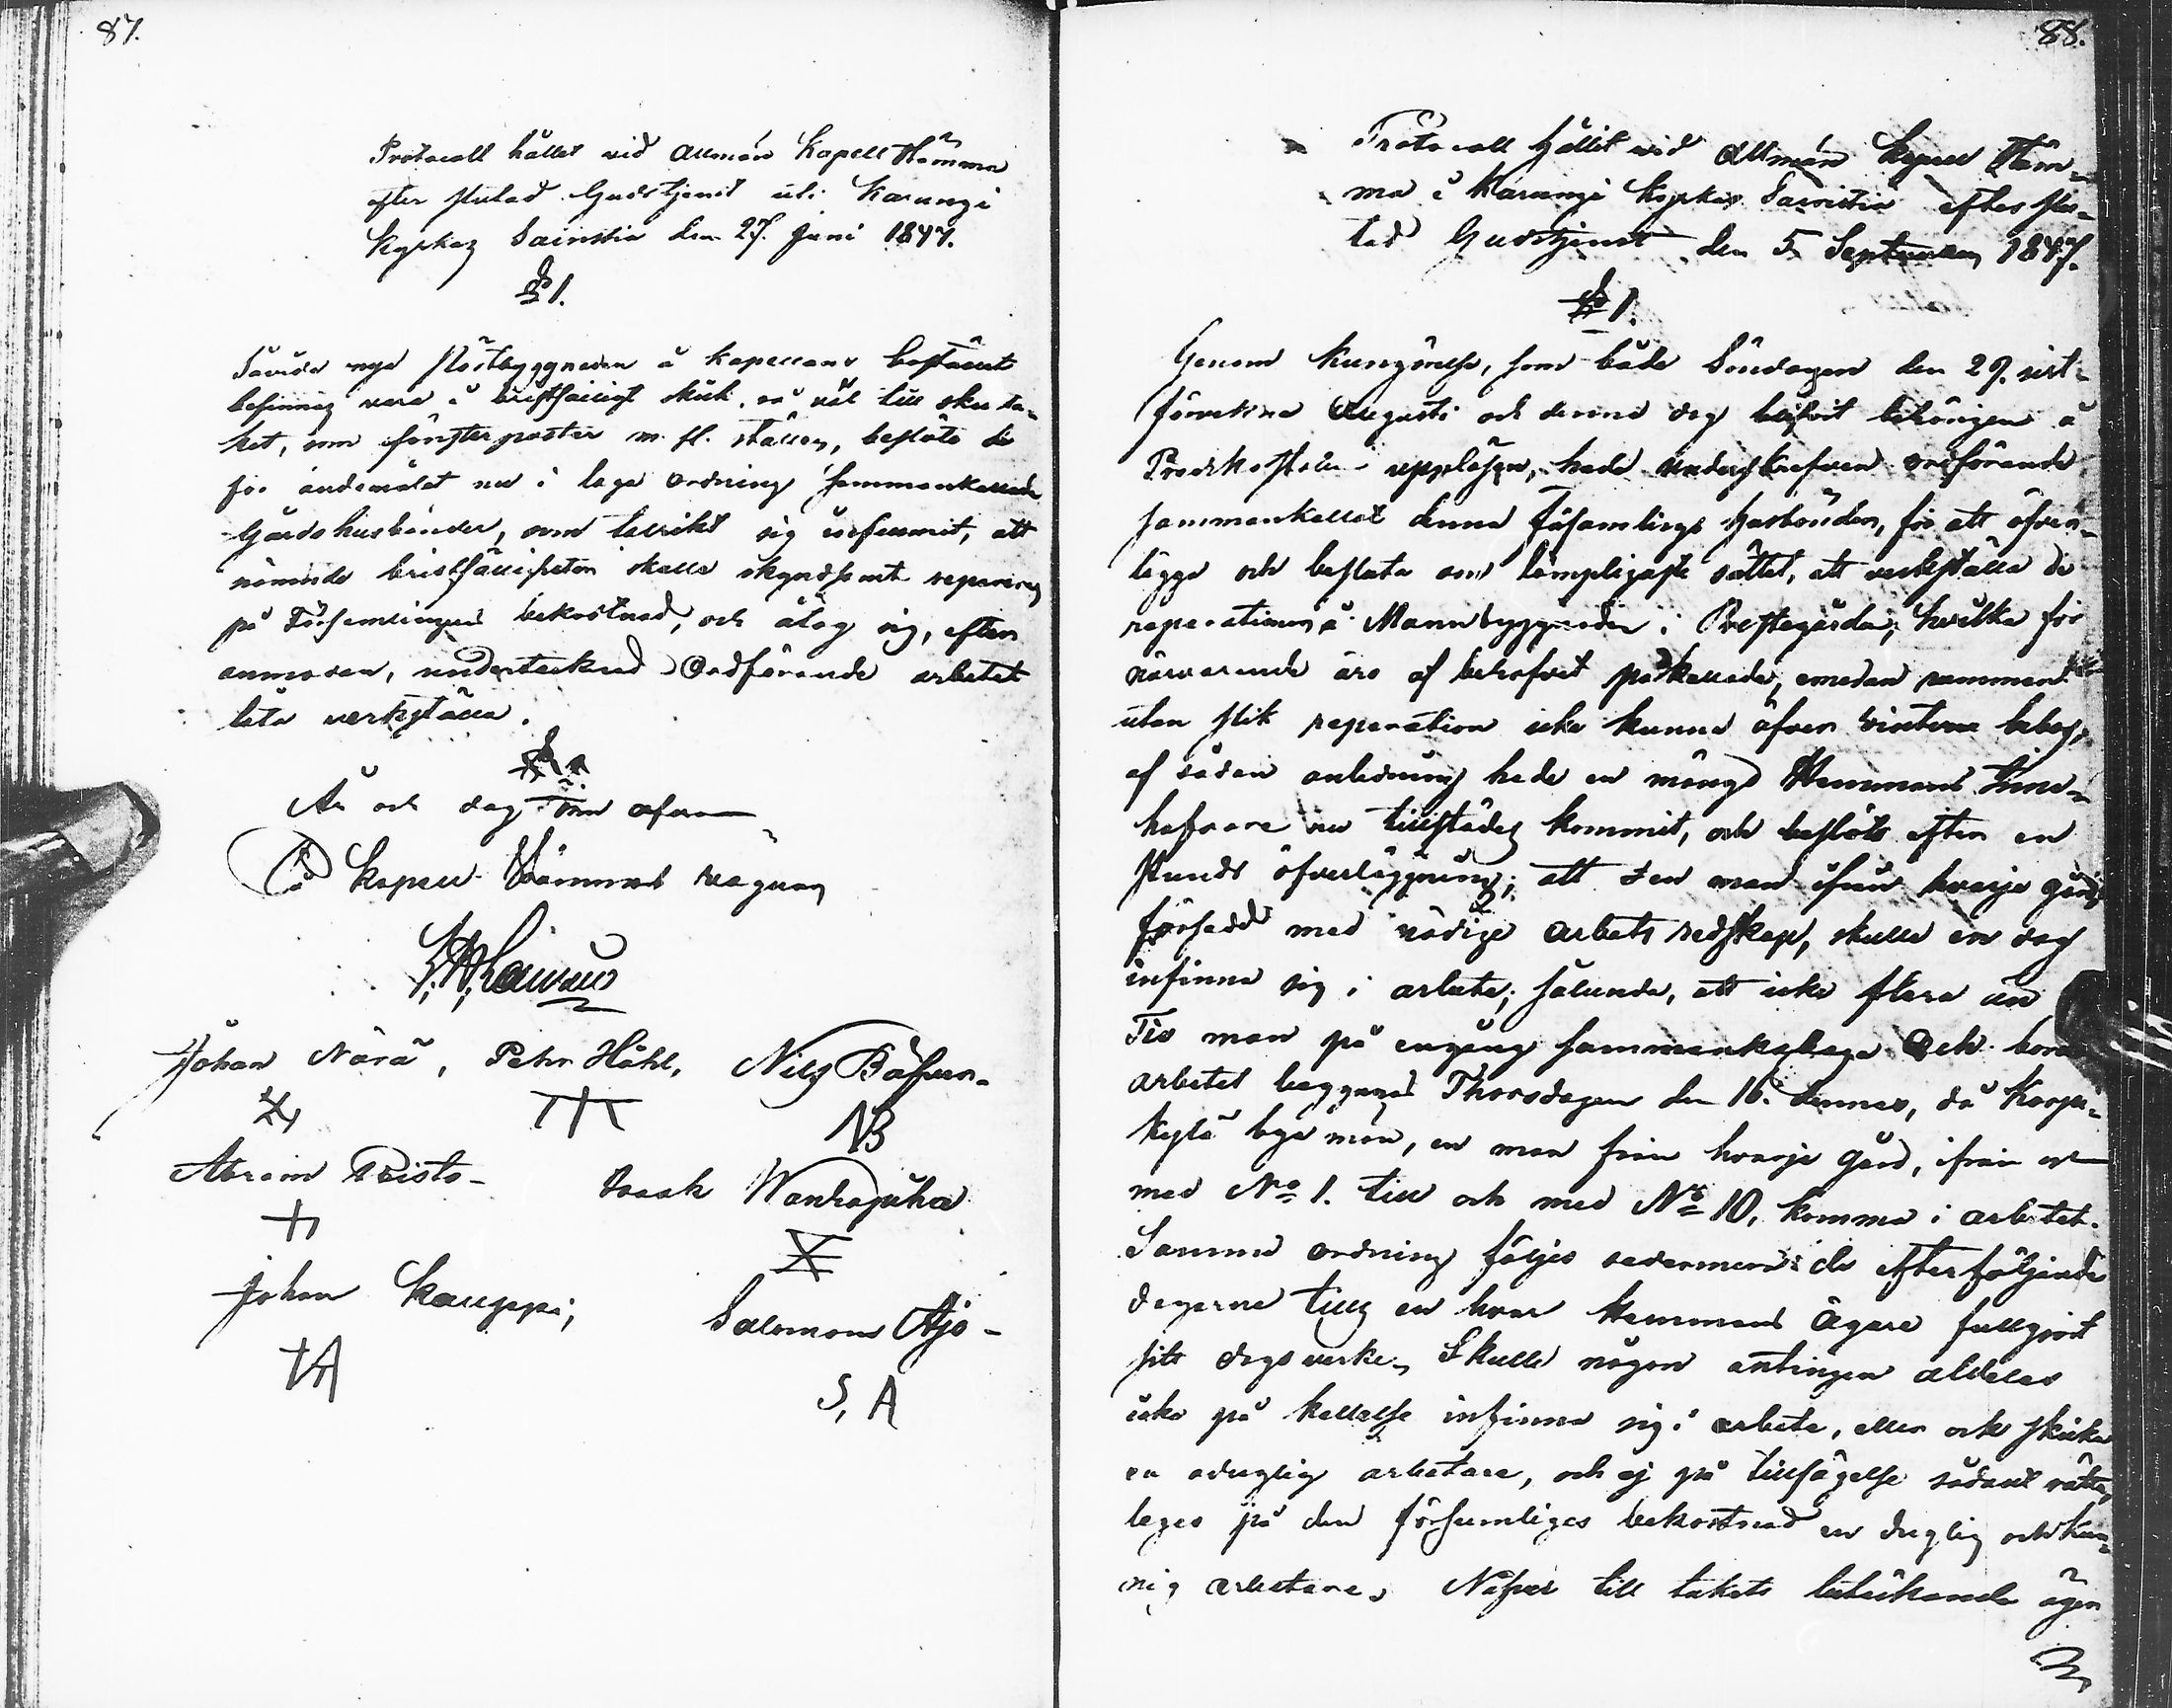 87.
Protocoll hållet vid Allmän Kapell Stämma
efter slutad Gudstjenst uti Karungi
Kyrkas Sacristia den 27. Juni 1847.
§ 1.
Såvida nya fästbyggnaden å Kapellans bostället
befinnes vara i bristfälligt skick, så väl till
ket, som fönsterposter m. fl. ställen, beslöto de
för ändamålet nu i laga ordning sammankallade
Gårdshusbönder, som talrikt sig infunnit, att
nämnde bristfälligheter skulle skyndsamt repareras
på Församlingens bekostnad, och åtog sig, efter
anmodan, undertecknad Ordförande arbetet
låta verkställa.
§
År och dag som ofvan
På Kapell Stämmans vägnar
Johan Närä, Petter Höhl, Nils Bäfver-
NB
Abram Risto- Isaak Wanhapiha
Johan Kauppi, Salomon Ajo-
S, A
88.
Protocoll hållit vid Allmän Kapell Stäm-
ma i Karungi Kyrkas Sacristia efter slu-
tad Gudstjenst den 5 September 1847.
§ 1.
Genom Kungörelse, som både Söndagen den 29. sist-
förvekne Augusti och denna dag blifvit behörigen å
Predikostolen uppläsen, hade underskrefven ordförande
sammankallat denna Församlings husbönder, för att öfver-
lägga och besluta om lämpligaste sättet, att verkställa de
reparationer å Mannbyggnaden i Prestegården, hvilka för
närvarande äro af behofvet påkallade, emedan rummen
utan slik reparation icke kunna öfver vintern bebos,
af sådan anledning hade en mängd Hemmans Inne-
hafvare nu tillstädes kommit, och beslöts efter en
stunds öfverläggning, att en man ifrån hvarje gård,
försedd med nödige arbets redskap, skulle en dag
infinna sig i arbete; sålunda, att icke flera än
Tio man på engång sammankallas Och bör
arbetet begynnas Thorsdagen den 16. dennes, då Karpi-
kylä bya män, en man från hvarje gård, ifrån och
med No 1. till och med No 10, komma i arbetet.
Samma ordning följes sedermera de efterföljande
dagarne tills en hvar Hemmans Ägare fullgjort
sitt dagsverke. Skulle någon antingen aldeles
icke på kallelse infinna sig i arbete, eller ock skicka
en oduglig arbetare, och ej på tillsägelse sådant rätta,
leges på den försumliges bekostnad en duglig och kun-
nig arbetare. Näfver till takets betäckande ägen